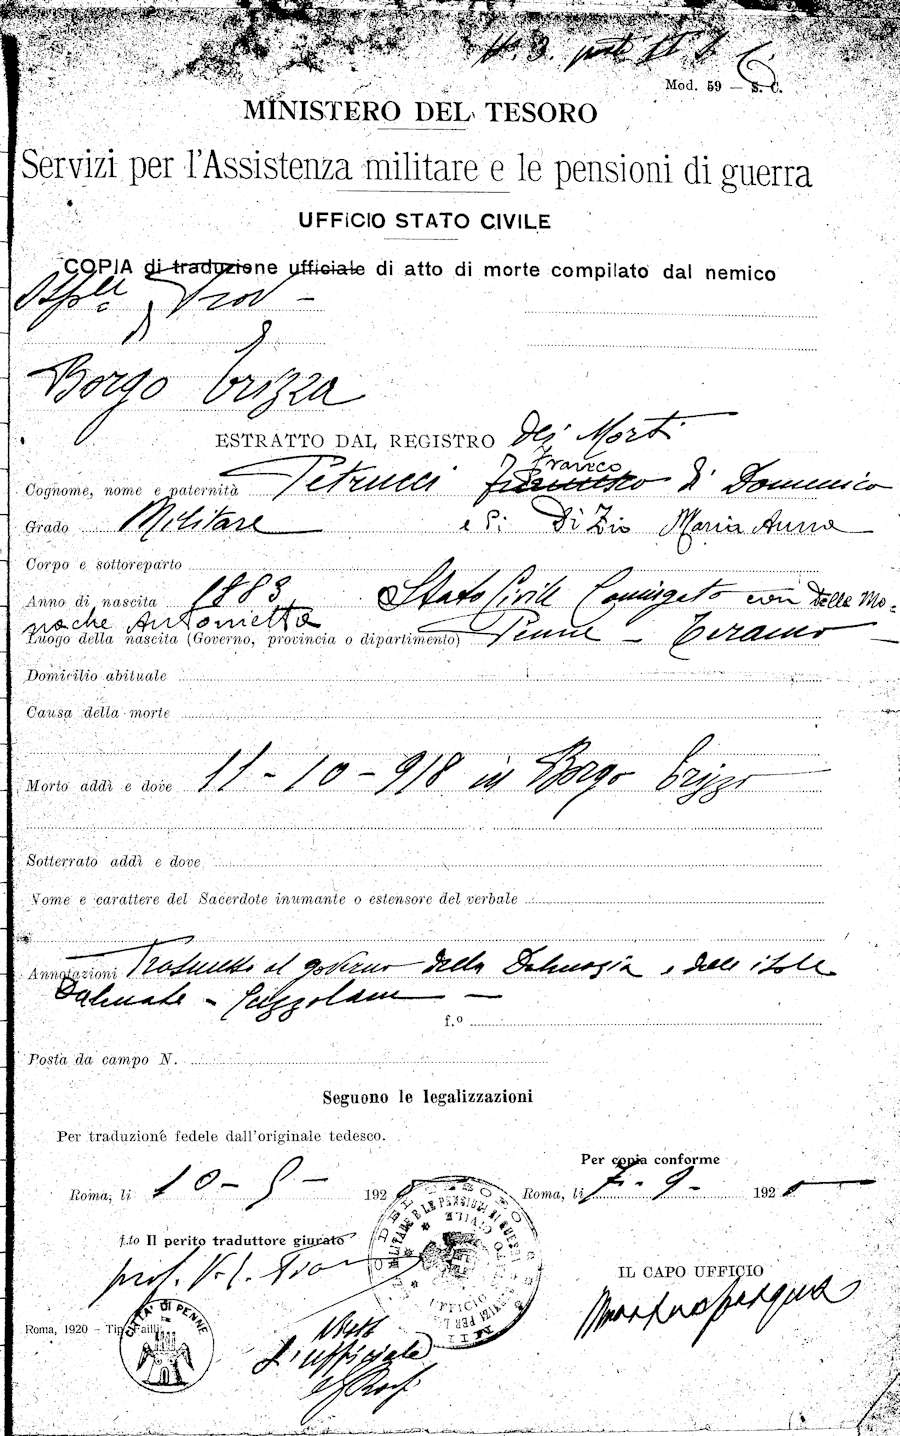 N. 3. parte II S. C
Mod. 59 — S. C.
MINISTERO DEL TESORO
Servizi per l'Assistenza militare e le pensioni di guerra
UFFICIO STATO CIVILE
COPIA di traduzione ufficiale di atto di morte compilato dal nemico
Prov
di
Borgo Erizzo
ESTRATTO DAL REGISTRO Dei Morti
Franco
Cognome, nome e paternità Petrucci Francesco di Domenico
Grado Militare e Di Di Zio Maria Anna
Corpo e sottoreparto
Anno di nascita 1883 Stato Civile Coniugato con Della Mo-
nache Antonietta
Luogo della nascita (Governo, provincia o dipartimento) Penne - Teramo
Domicilio abituale
Causa della morte
Morto addì e dove 11-10-918 in Borgo Erizzo
Sotterrato addì e dove
Nome e carattere del Sacerdote inumante o estensore del verbale
Annotazioni Trasmesso al governo della Dalmazia e delle isole
Dalmate - Cuzzolane
f.º
Posta da campo N.
Seguono le legalizzazioni
Per traduzione fedele dall'originale tedesco.
Per copia conforme
Roma, li 10-9- 1920
Roma, li 7-9- 1920
f.to Il perito traduttore giurato
prof. V. L.
IL CAPO UFFICIO
CITTA' DI PENNE
Roma, 1920 - Tip.
L'ufficiale